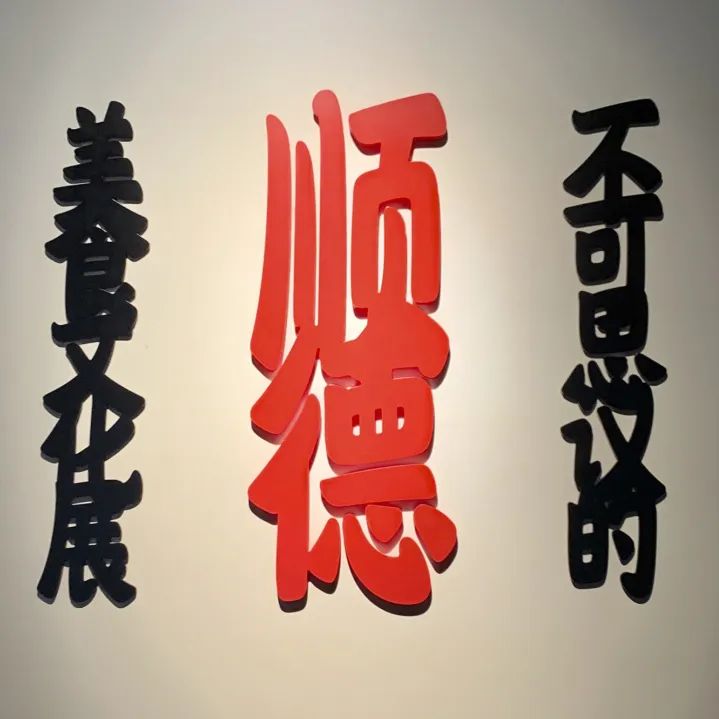 不可思议的
顺德
美食文化展